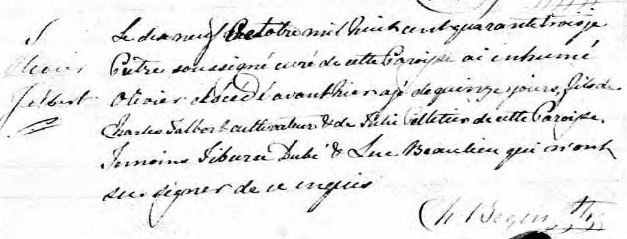 S
Olivier
Talbert
Le dix neuf Octobre mil huit cent quarante trois je
Prêtre soussigné curé de cette Paroisse ai inhumé
Olivier décédé avant hier agé de quinze jours, fils de
Charles Talbert cultivateur & de Julie Pelletier de cette Paroisse.
Temoins Tiburce Dubé & Luc Beaulieu qui n'ont
su signer de ce requis
Ch. Begin Ptre